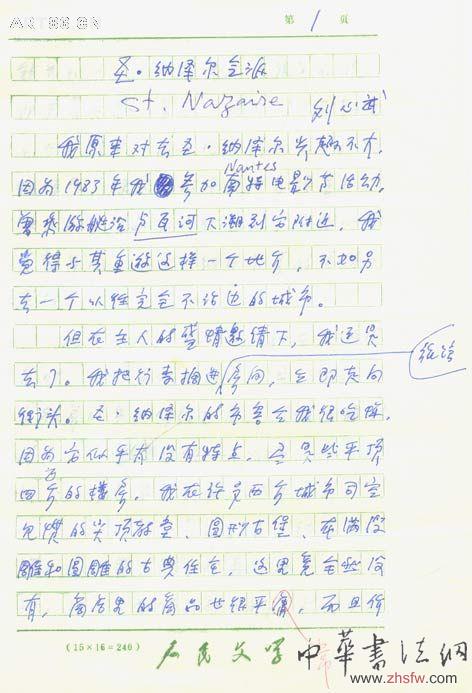 ARTSS.CN
第 1 页
圣·纳泽尔
St. Nazaire
刘心武
我原来对去圣·纳泽尔兴趣不大，
Nantes
因为1983年我参加南特电影节活动，
曾乘游艇沿卢瓦河下溯到它附近。我
觉得与其重游这样一个地方，不如另
去一个以往完全不沾边的城市。
但在主人的盛情邀请下，我还是
去了。我把行李搁进房间，立即走向
街头。圣·纳泽尔的市容令我很吃惊，
因为它似乎都没有特点，尽是些平顶
四方的楼房，我在许多西方城市司空
见惯的尖顶教堂、圆形古堡、布满浮
雕和圆雕的古典住宅，这里竟全然没
有，商店里的商品也很平庸，而且价
常
(15×16=240)
人民文学
中華書法網
www.zhsfw.com